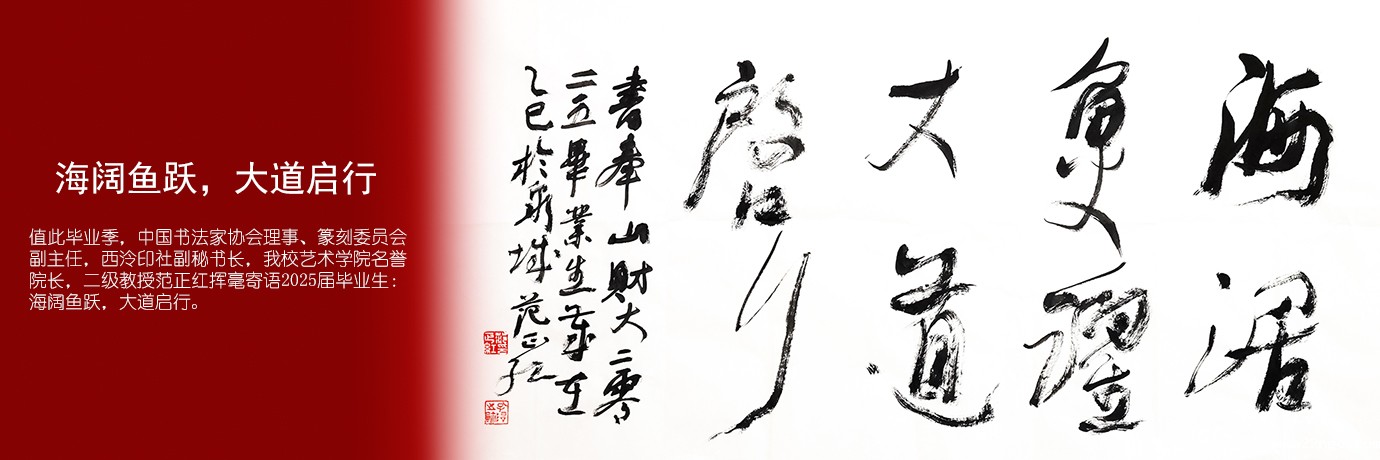 海阔鱼跃，大道启行
值此毕业季，中国书法家协会理事、篆刻委员会
副主任，西泠印社副秘书长，我校艺术学院名誉
院长，二级教授范正红挥毫寄语2025届毕业生：
海阔鱼跃，大道启行。
海阔
魚躍
大道
啓行
書奉山財大二零
二五畢業生歲在
乙巳於泉城范正红